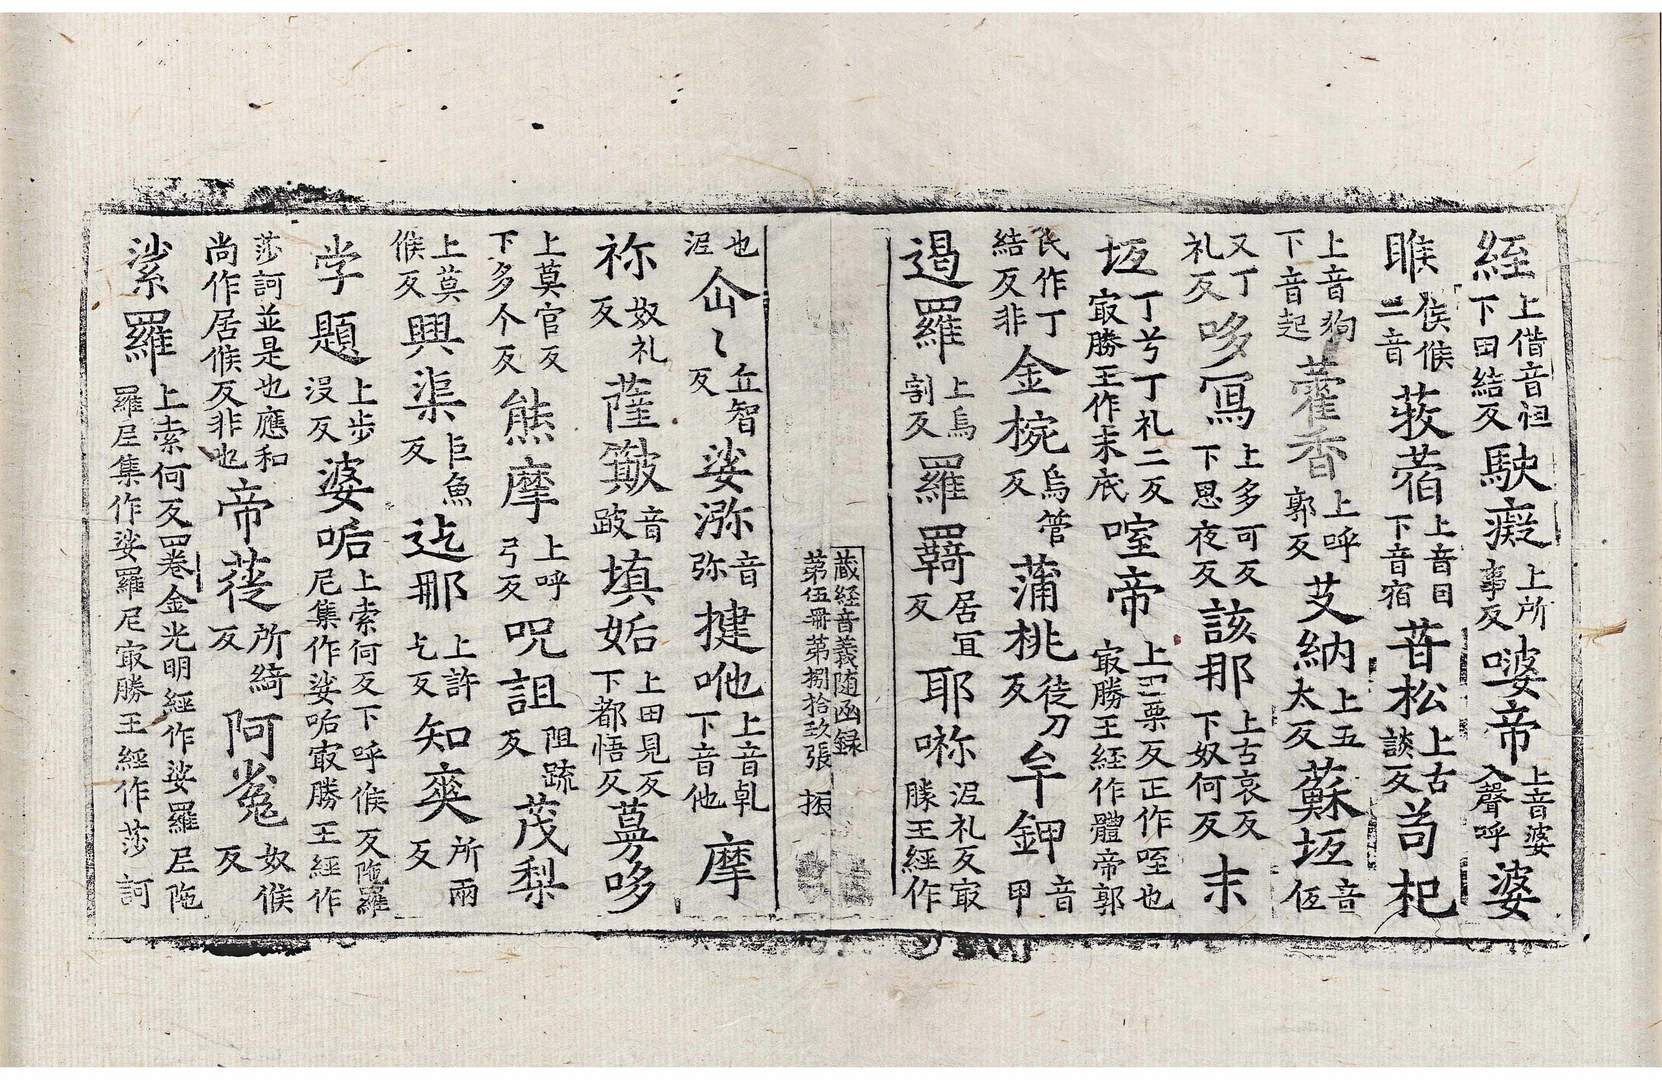 絰上借音祖下田結反駛癡上所事反㗑帝上音婆入聲呼婆
睺侯候二音莜蓿上音目下音宿苷松上古談反茍杞
上音狗下音起藿香上呼郭反艾納上五太反蘓坘音伍
又丁礼反哆冩上多可反下思夜反該那上古哀反下奴何反末
坘丁兮丁礼二反㝡勝王作末底㗌帝上票反正作咥也㝡勝王經作體帝郭
氏作丁結反非金椀烏管反蒲桃徒刀反牟鉀音甲
遏羅上烏割反羅羇居冝反耶㖿泥礼反㝡勝王經作
蔵經音義随函録第伍冊第捌拾玖張 振
也泥㕣〻丘智反娑㳽音弥揵吔上音乹下音他摩
祢奴礼反薩簸音跛填妬上田見反下都悟反蟇哆
上莫官反下多个反熊摩上呼弓反呪詛阻䟽反茂梨
上莫候反興渠巨魚反迄那上許乞反知爽所兩反
孛題上步没反婆㖃上索何反下呼候反陁羅尼集作娑㖃㝡勝王經作
莎訶並是也應和尚作居候反非也帝蓰所綺反阿㝹奴候反
縩羅上索何反四卷金光明經作娑羅尼陁羅尼集作娑羅尼㝡勝王經作莎訶